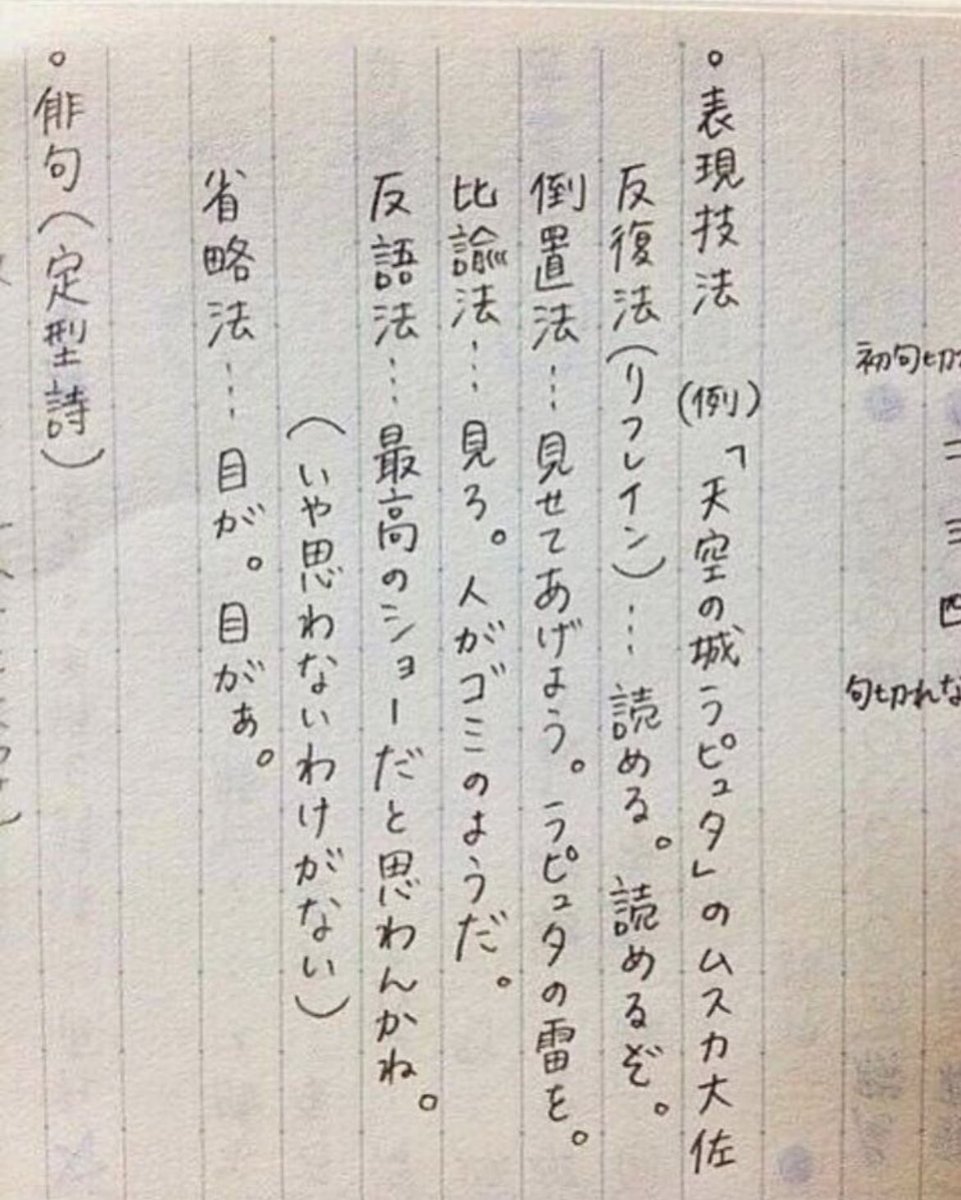 初句切
二
三
四
句切れな
。表現技法 (例)「天空の城ラピュタ」のムスカ大佐
反復法(リフレイン)… 読める。読めるぞ。
倒置法… 見せてあげよう。ラピュタの雷を。
比諭法… 見ろ。人がゴミのようだ。
反語法… 最高のショーだと思わんかね。
(いや思わないわけがない)
省略法… 目が。目がぁ。
。俳句(定型詩)